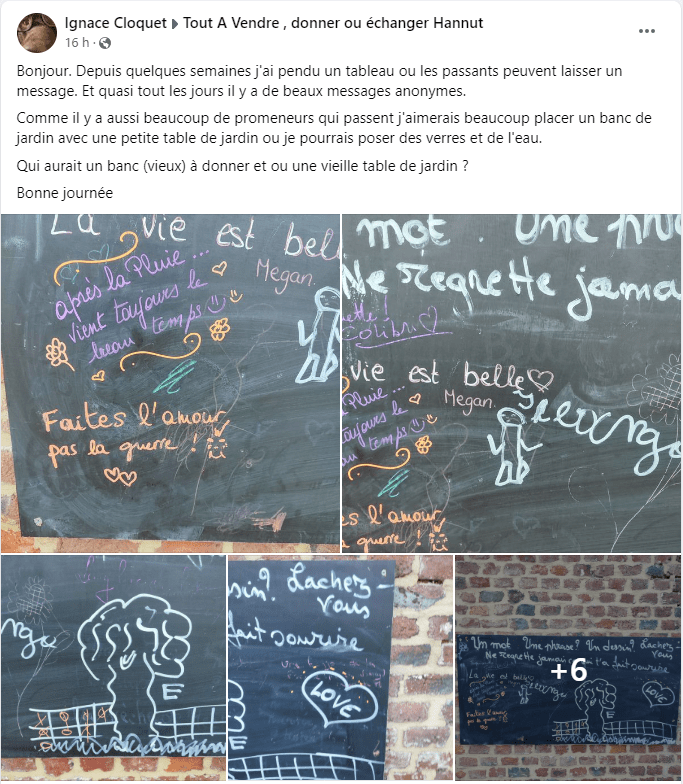 Ignace Cloquet ▸ Tout A Vendre , donner ou échanger Hannut
16 h ·
Bonjour. Depuis quelques semaines j'ai pendu un tableau ou les passants peuvent laisser un
message. Et quasi tout les jours il y a de beaux messages anonymes.
Comme il y a aussi beaucoup de promeneurs qui passent j'aimerais beaucoup placer un banc de
jardin avec une petite table de jardin ou je pourrais poser des verres et de l'eau.
Qui aurait un banc (vieux) à donner et ou une vieille table de jardin ?
Bonne journée
La vie est bel
Megan.
après la Pluie ...
vient toujours le
beau temps
Faites l'amour
pas la guerre !
mot. Une
Ne regrette jama
Colibri
vie est belle
Megan.
Pluie ...
toujours le
au temps
es l'amour
a guerre !
E
sin? Lachez-
vous
fait sourire
LOVE
E
Un mot Une phrase? Un dessin? Lachez-
vous
Ne regrette jamais t'a fait sourire
La vie est belle
LOVE
E
Faites l'amour
pas la guerre !
+6